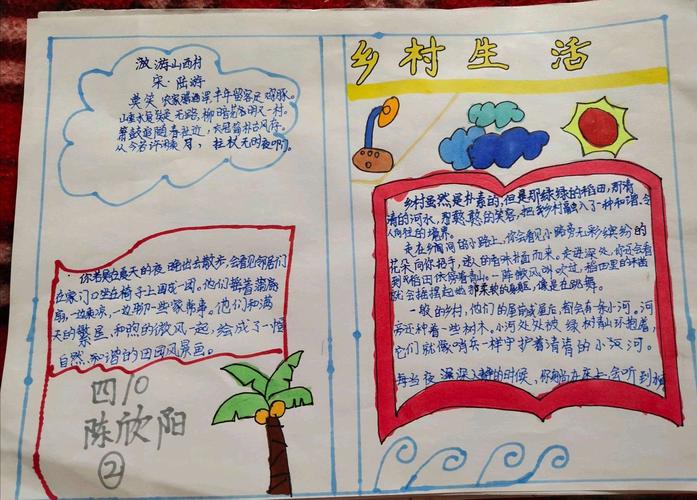 游山西村
宋·陆游
莫笑农家腊酒浑丰年留客足鸡豚。
山重水复疑无路,柳暗花明又一村。
箫鼓追随春社近,衣冠简朴古风存。
从今若许闲乘月,拄杖无时夜叩门。
你若是在夏天的夜晚出去散步,会看见邻居们
在家门口坐在椅子上围成一团。他们拿着蒲
扇,一边乘凉,一边聊一些家常事。他们和满
天的繁星,和煦的微风一起,绘成了一幅
自然、和谐的田园风景画。
四10
陈欣阳
②
乡村生活
乡村虽然是朴素的,但是那绿绿的稻田,清
清的河水,憨憨的笑容,把乡村融入了一种和谐,令
人向往的境界。
走在乡间的小路上,你会看见小路旁五彩缤纷的
花朵向你招手,迷人的香味扑面而来。走进深处,你还会看
到稻田依傍着青山。一阵微风吹过,稻田里的禾苗
就会摇摆起那柔软的身躯,像是在跳舞。
一般的乡村,他们的屋前或屋后,都会有一条小河。河
旁还种着一些树木。小河处处被绿树青山环抱着,
它们就像哨兵一样守护着清清的小河。
每当夜深人静的时候,你躺在床上,会听到